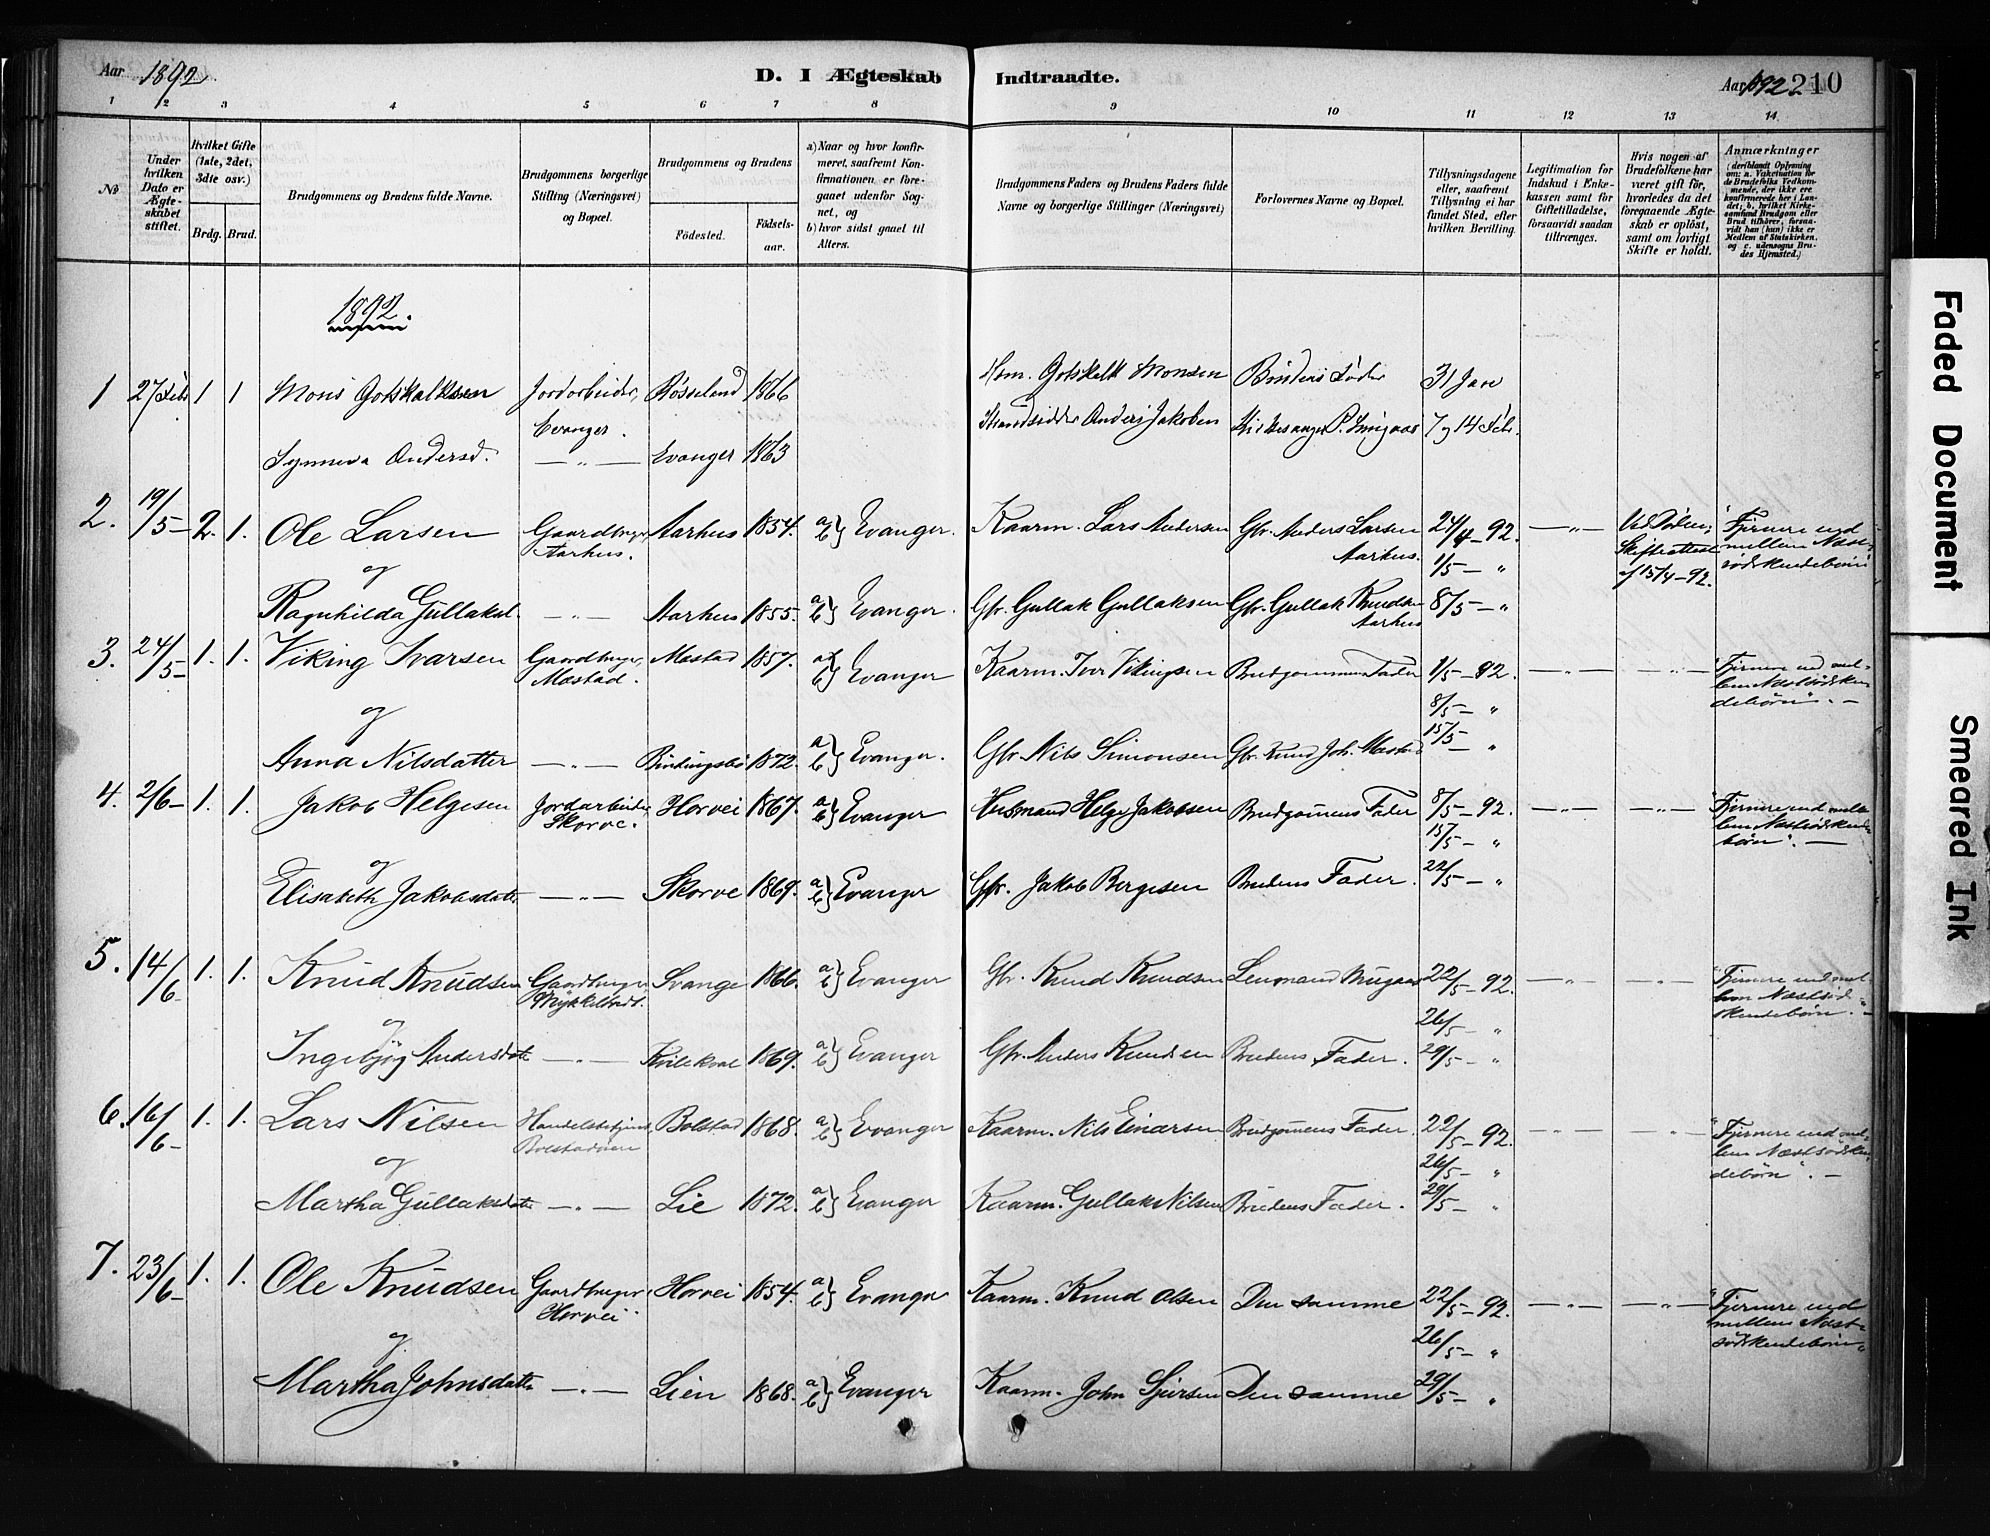 Aar 1892 D. I Ægteskab Indtraadte. Aar 1892 210
1 2 3 4 5 6 7 8 9 10 11 12 13 14
No
Under hvilken Dato er Ægteskabet stiftet.
Hvilket Gifte (1ste, 2det, 3die osv.)
Brdg. Brud.
Brudgommens og Brudens fulde Navne.
Brudgommens borgerlige Stilling (Næringsvei) og Bopæl.
Brudgommens og Brudens
Födested. Födselsaar.
a) Naar og hvor konfirmeret, saafremt Konfirmationen er foregaaet udenfor Sognet, og
b) hvor sidst gaaet til Alters.
Brudgommens Faders og Brudens Faders fulde Navne og borgerlige Stillinger (Næringsvei)
Forlovernes Navne og Bopæl.
Tillysningsdagene eller, saafremt Tillysning ei har fundet Sted, efter hvilken Bevilling.
Legitimation for Indskud i Enkekassen samt for Giftetilladelse, forsaavidt saadan tiltrænges.
Hvis nogen af Brudefolkene har været gift før, hvorledes da det foregaaende Ægteskab er oplöst, samt om lovligt Skifte er holdt.
Anmærkninger
(deriblandt Oplysning om: a. Vakcination for de Brudefolks Vedkommende, der ikke ere konfirmerede her i Landet; b. hvilket Kirkesamfund Brudgom eller Brud tilhörer, forsaavidt han (hun) ikke er Medlem af Statskirken, og c. udensogns Brudes Hjemsted.)
1892.
1 27 Feb 1 1 Mons Gotskalksen Jordarbeider, Røsseland 1866 Hsm. Gotskalk Monsen Brudens Fader 31 Jan
Evanger. Strandsidder Anders Jakobsen Kirkesanger 7 og 14 Feb.
Synneva Andersd. — " — Evanger 1863
2. 19/5 — 2. 1. Ole Larsen Gaardbruger Aarhus 1854. a b} Evanger. Kaarm. Lars Andersen Gbr. Anders Larsen 24/4 — 92. — " — "Fjernere end
Aarhus. Aarhus. 1/5 — " Skifteattest mellem Næst-
og af 15/4 — 92. södskendebörn"
Ragnhilda Gullaksd. — " — Aarhus 1855. a b} Evanger. Gbr. Gullak Gullaksen Gbr. Gullak Knudsen 8/5 — "
Aarhus
3. 24/5 — 1. 1. Viking Ivarsen Gaardbruger, Mæstad 1857. a b} Evanger Kaarm. Iver Vikingsen Brudgommens Fader 1/5 — 92. — " — — " — "Fjernere end mel-
Mæstad. 8/5 — " lem Næstsödsken-
og 15/5 — " debörn". —
Anna Nilsdatter — " — 1872. a b} Evanger. Gbr Nils Simonsen Gbr. Knud Joh. Mæstad
4. 2/6 — 1. 1. Jakob Helgesen Jordarbeider Horvei 1867. a b} Evanger Husmand Helge Jakobsen Brudgomens Fader 8/5 — 92. — " — — " — "Fjernere end mel-
Skorve. 15/5 — " lem Næstsödskende-
og börn". —
Elisabeth Jakobsdatt. — " — Skorve 1869. a b} Evanger Gbr. Jakob Bergesen Brudens Fader. 22/5 — "
5. 14/6 — 1. 1. Knud Knudsen Gaardbruger Svange 1866. a b} Evanger Gbr. Knud Knudsen Lensmand Mugaas 22/5 — 92. — " — — " — "Fjernere end mel-
lem Næstsöd-
og 26/5 — " skendebörn". —
Ingebjörg Andersdatt. — " — Kvilekval 1869. a b} Evanger Gbr. Anders Knudsen Brudens Fader. 29/5 — "
6. 16/6 — 1. 1. Lars Nilsen Handelsbetjent, Bolstad 1868. a b} Evanger Kaarm. Nils Einarsen Brudgomens Fader. 22/5 — 92. — " — — " — "Fjernere end mel-
Bolstadøren 26/5 — " lem Næstsödsken-
og debörn". —
Martha Gullaksdatt. — " — Lie 1872. a b} Evanger Kaarm. Gullak Nilsen Brudens Fader. 29/5 — "
7. 23/6 — 1. 1. Ole Knudsen Gaardbruger, Horvei 1854. a b} Evanger Kaarm. Knud Olsen Den samme 22/5 — 92. — " — — " — "Fjernere end
Horvei. mellem Næst-
og 26/5 — " södskendebörn"
Martha Johnsdatter — " — Lien 1868. a b} Evanger Kaarm. John Sjursen Den samme 29/5 — "
Faded Document
Smeared Ink